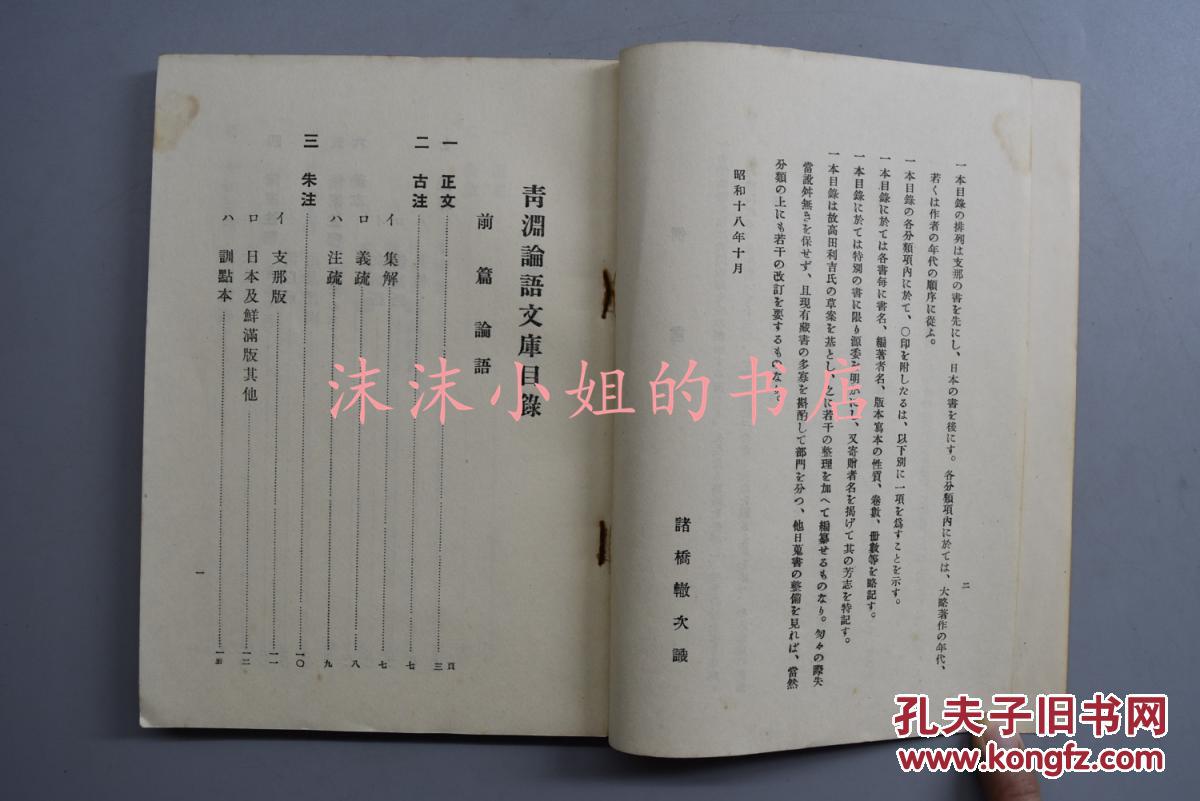 一本目錄の排列は支那の書を先にし、日本の書を後にす。各分類項內に於ては、大略著作の年代、
若くは作者の年代の順序に從ふ。
一本目錄の各分類項內に於て、〇印を附したるは、以下別に一項を爲すことを示す。
一本目錄に於ては各書每に書名、編著者名、版本寫本の性質、卷數、册數等を略記す。
一本目錄に於ては特別の書に限り源委を明かにし、又寄贈者名を揭げて其の芳志を特記す。
一本目錄は故高田利吉氏の草案を基とし、之に若干の整理を加へて編纂せるものなり。匆々の際失
當說舛無きを保せず、且現有藏書の多寡を斟酌して部門を分つ、他日蒐書の整備を見れば、當然
分類の上にも若干の改訂を要するものなり。
昭和十八年十月
諸橋轍次識
二
靑淵論語文庫目錄
前篇 論語
頁
一 正文 三
二 古注 七
イ 集解 七
ロ 義疏 八
ハ 注疏 九
三 朱注 一〇
イ 支那版 一一
ロ 日本及鮮滿版其他 一二
ハ 訓點本 一五
一
沫沫小姐的书店
孔夫子旧书网
www.kongfz.com